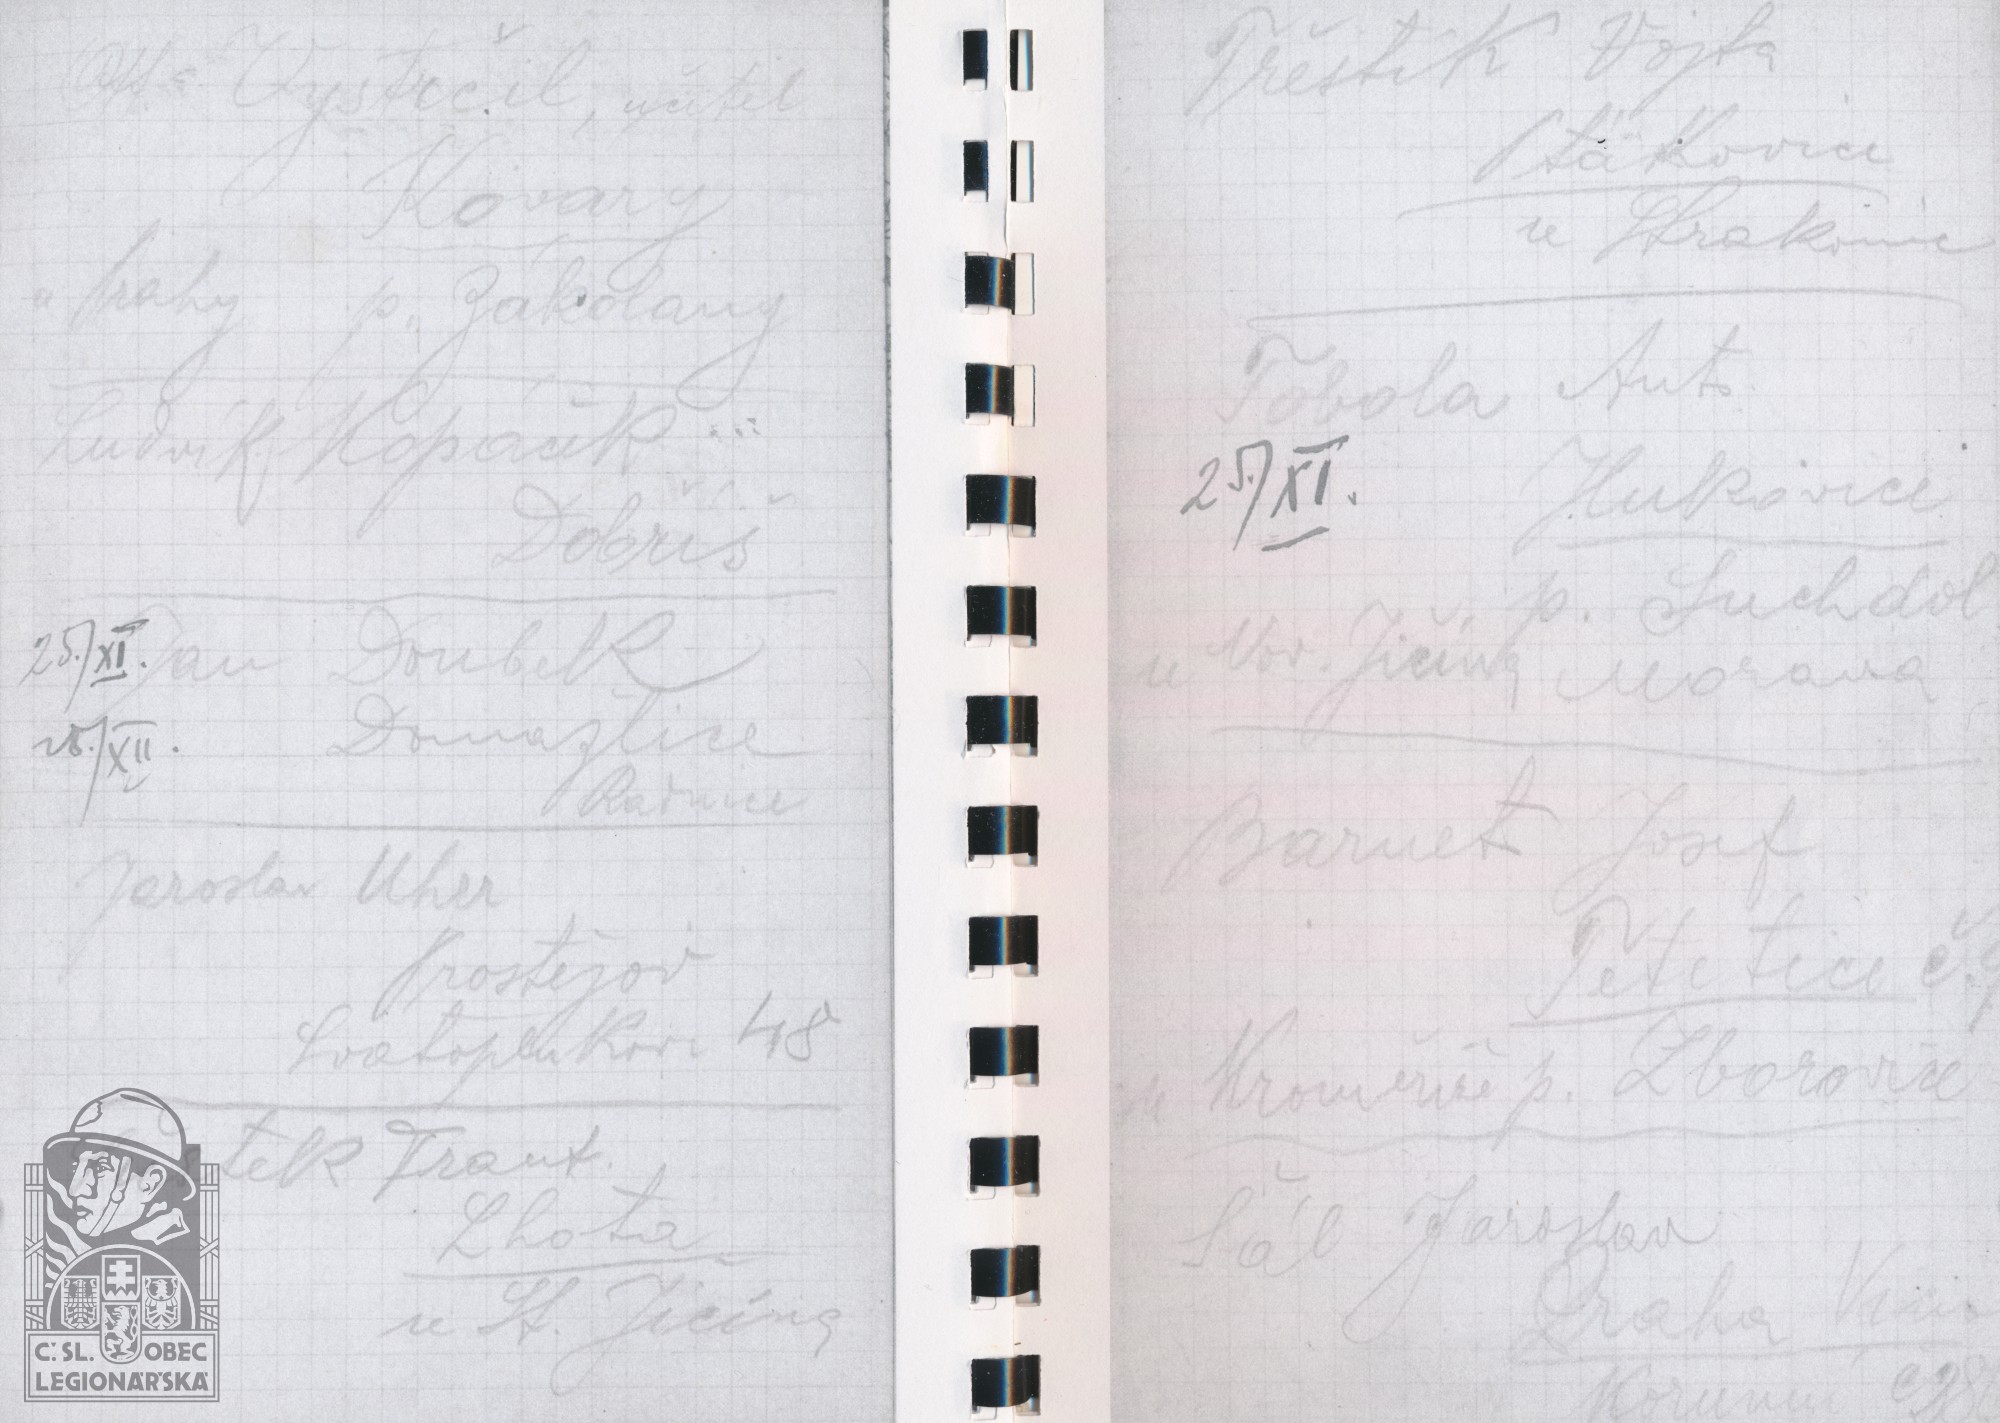 Vystrčil, učitel
Kovary
u Prahy p. Zákolany
Ludvík Kopáček
Dobříš
25./XI. Jan Doubek
Domažlice
25./XII.
Radnice
Jaroslav Uher
Prostějov
Svatoplukova 48
Frant.
Lhota
u St. Jičína
Č.SL. OBEC
LEGIONÁŘSKÁ
Třeštík Vojta
Ptákovice
u Strakonic
Tobola Ant.
25./XI.
Hukovice
p. Suchdol
u Nov. Jičína Morava
Barnet Josef
Tetetice č.
u Kroměříže p. Zborovice
Šál Jaroslav
Praha